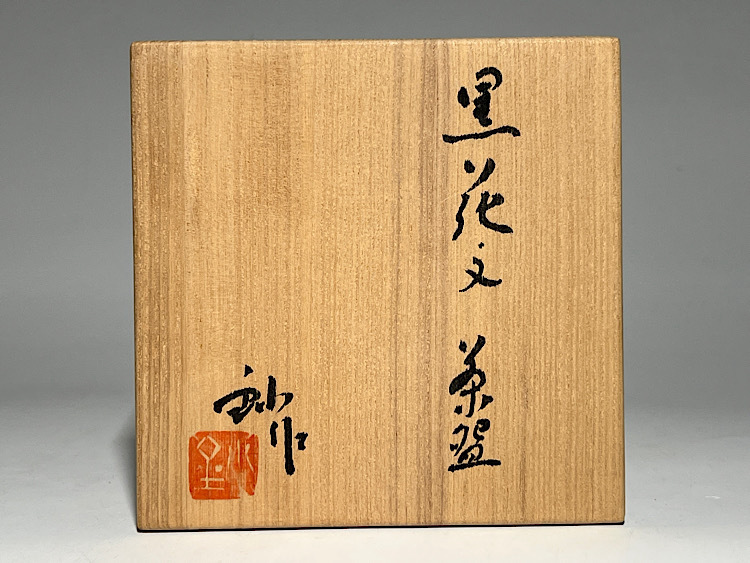 黒花文 茶盌
作